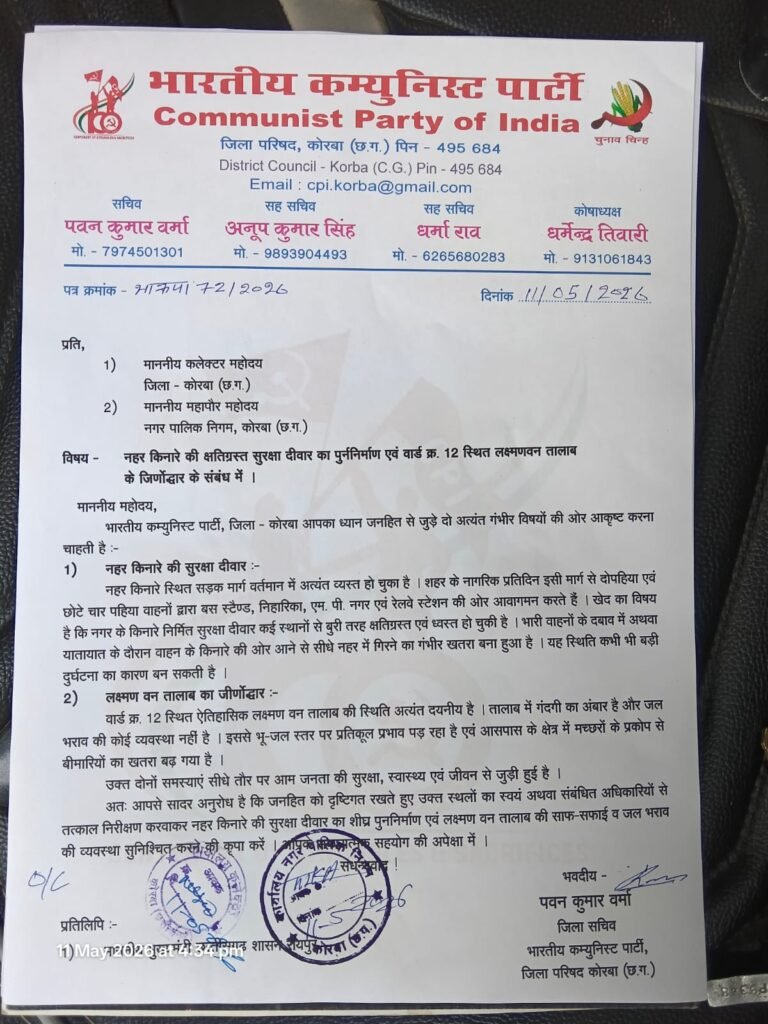 भारतीय कम्युनिस्ट पार्टी
Communist Party of India
चुनाव चिन्ह
जिला परिषद, कोरबा (छ.ग.) पिन - 495 684
District Council - Korba (C.G.) Pin - 495 684
Email : cpi.korba@gmail.com
सचिव सह सचिव सह सचिव कोषाध्यक्ष
पवन कुमार वर्मा अनूप कुमार सिंह धर्मा राव धर्मेन्द्र तिवारी
मो. - 7974501301 मो. - 9893904493 मो. - 6265680283 मो. - 9131061843
पत्र क्रमांक - भाकपा 72/2026 दिनांक 11/05/2026
प्रति,
1) माननीय कलेक्टर महोदय
जिला - कोरबा (छ.ग.)
2) माननीय महापौर महोदय
नगर पालिक निगम, कोरबा (छ.ग.)
विषय - नहर किनारे की क्षतिग्रस्त सुरक्षा दीवार का पुर्ननिर्माण एवं वार्ड क्र. 12 स्थित लक्ष्मणवन तालाब
के जिर्णोद्धार के संबंध में ।
माननीय महोदय,
भारतीय कम्युनिस्ट पार्टी, जिला - कोरबा आपका ध्यान जनहित से जुड़े दो अत्यंत गंभीर विषयों की ओर आकृष्ट करना
चाहती है :-
1) नहर किनारे की सुरक्षा दीवार :-
नहर किनारे स्थित सड़क मार्ग वर्तमान में अत्यंत व्यस्त हो चुका है । शहर के नागरिक प्रतिदिन इसी मार्ग से दोपहिया एवं
छोटे चार पहिया वाहनों द्वारा बस स्टैण्ड, निहारिका, एम. पी. नगर एवं रेलवे स्टेशन की ओर आवागमन करते हैं । खेद का विषय
है कि नगर के किनारे निर्मित सुरक्षा दीवार कई स्थानों से बुरी तरह क्षतिग्रस्त एवं ध्वस्त हो चुकी है । भारी वाहनों के दबाव में अथवा
यातायात के दौरान वाहन के किनारे की ओर आने से सीधे नहर में गिरने का गंभीर खतरा बना हुआ है । यह स्थिति कभी भी बड़ी
दुर्घटना का कारण बन सकती है ।
2) लक्ष्मण वन तालाब का जीर्णोद्धार :-
वार्ड क्र. 12 स्थित ऐतिहासिक लक्ष्मण वन तालाब की स्थिति अत्यंत दयनीय है । तालाब में गंदगी का अंबार है और जल
भराव की कोई व्यवस्था नहीं है । इससे भू-जल स्तर पर प्रतिकूल प्रभाव पड़ रहा है एवं आसपास के क्षेत्र में मच्छरों के प्रकोप से
बीमारियों का खतरा बढ़ गया है ।
उक्त दोनों समस्याएं सीधे तौर पर आम जनता की सुरक्षा, स्वास्थ्य एवं जीवन से जुड़ी हुई है ।
अतः आपसे सादर अनुरोध है कि जनहित को दृष्टिगत रखते हुए उक्त स्थलों का स्वयं अथवा संबंधित अधिकारियों से
तत्काल निरीक्षण करवाकर नहर किनारे की सुरक्षा दीवार का शीघ्र पुननिर्माण एवं लक्ष्मण वन तालाब की साफ-सफाई व जल भराव
की व्यवस्था सुनिश्चित करने की कृपा करें । आपके सहयोग की अपेक्षा में ।
सधन्यवाद !
O/C
भवदीय -
पवन कुमार वर्मा
जिला सचिव
भारतीय कम्युनिस्ट पार्टी,
जिला परिषद कोरबा (छ.ग.)
कार्यालय नगर पालिक निगम
कोरबा (छ.ग.)
11-5-2026
प्रतिलिपि :-
1) छत्तीसगढ़ शासन रायपुर
11 May 2026 at 4:34 pm